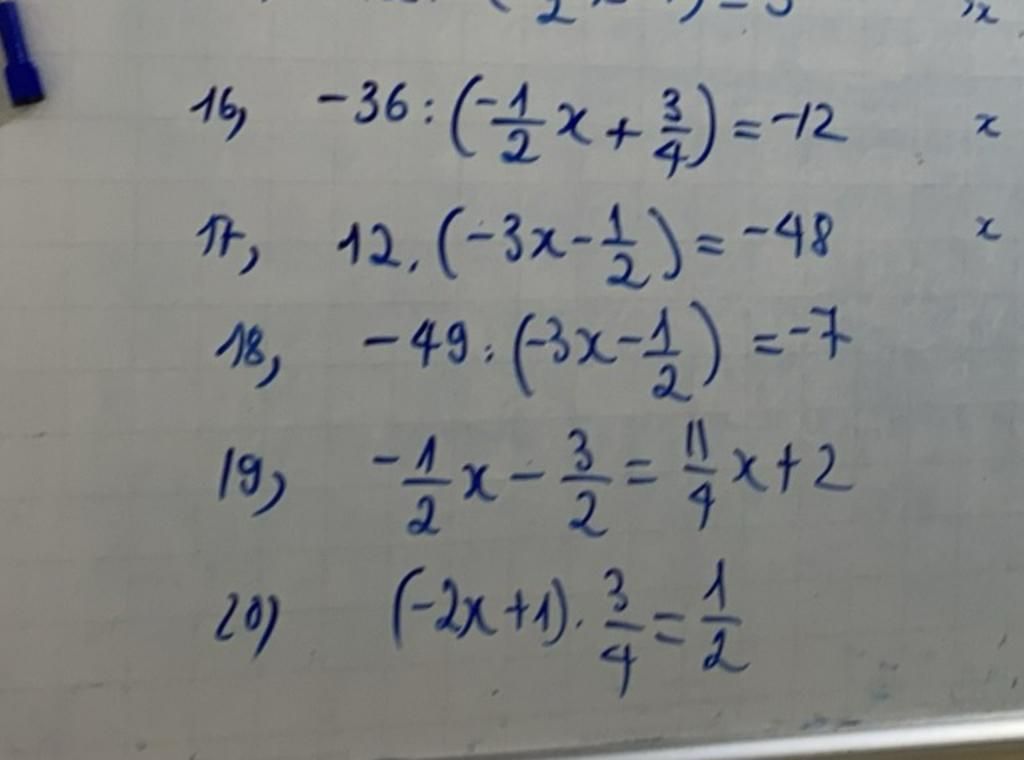 16, -36 : (-1/2 x + 3/4) = -12 x
17, 12 . (-3x - 1/2) = -48 x
18, -49 : (-3x - 1/2) = -7
19, -1/2 x - 3/2 = 11/4 x + 2
20) (-2x + 1) . 3/4 = 1/2